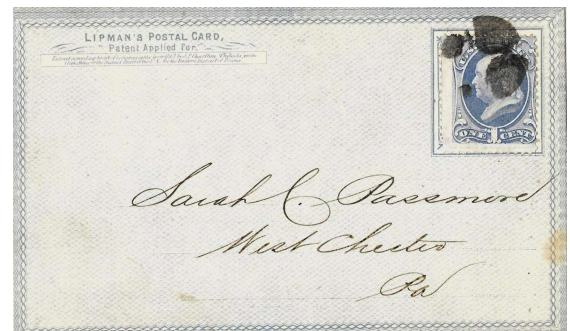 LIPMAN'S POSTAL CARD,
Patent Applied For.
ONE CENT
Sarah C. Passmore
West Chester
Pa